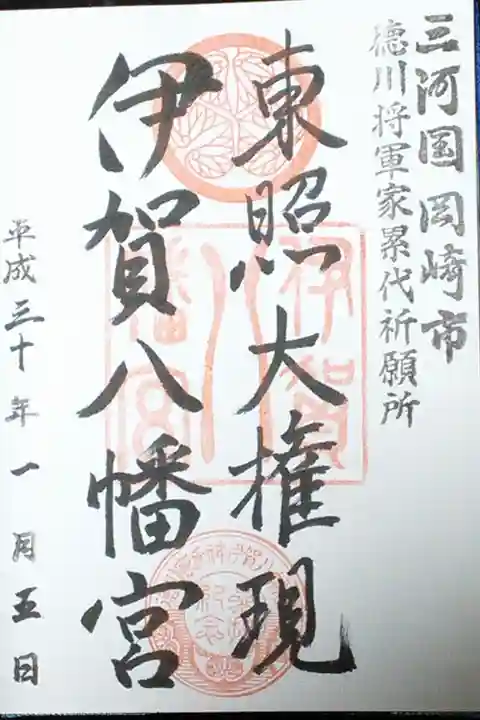 三河国岡崎市
徳川将軍家累代祈願所
東照大権現
伊賀八幡宮
平成三十年一月五日
伊賀
八
幡宮
記念